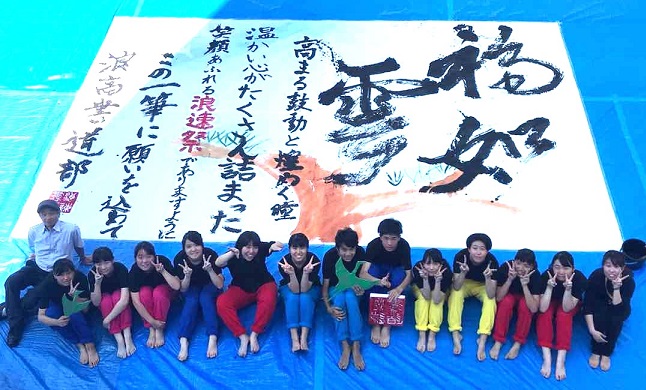 福如
雲
高まる鼓動と煌めく瞳
温かい心がたくさん詰まった
笑顔あふれる浪速祭でありますように
この一筆に願いを込めて
浪高書道部